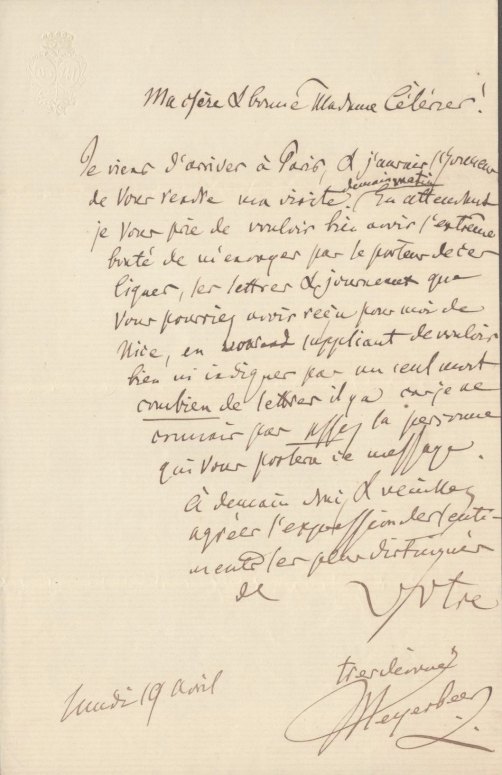 Ma chère & bonne Madame Célérier!
Je viens d'arriver à Paris, & j'aurais l'honneur
de Vous rendre ma visite demain matin. En attendant
je Vous prie de vouloir bien avoir l'extrême
bonté de m'envoyer par le porteur de ces
lignes, les lettres & journeaux que
Vous pourriez avoir reçu pour moi de
Nice, en Vous suppliant de vouloir
bien m'indiquer par un seul mot
combien de lettres il y a car je ne
connais pas assez la personne
qui Vous portera ce message.
À demain & veuillez
agréer l'expression des senti-
ments les plus distingués
de Votre
très dévoué
Meyerbeer
lundi 19 avril